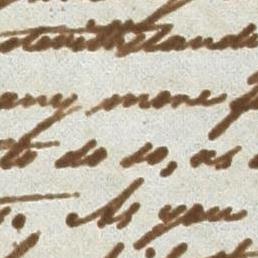 notwithstandi
any more f
to do so, as
. As you